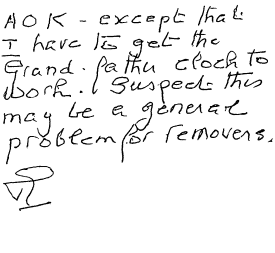 AOK - except that
I have to get the
Grand-father clock to
work. I suspect this
may be a general
problem for removers.